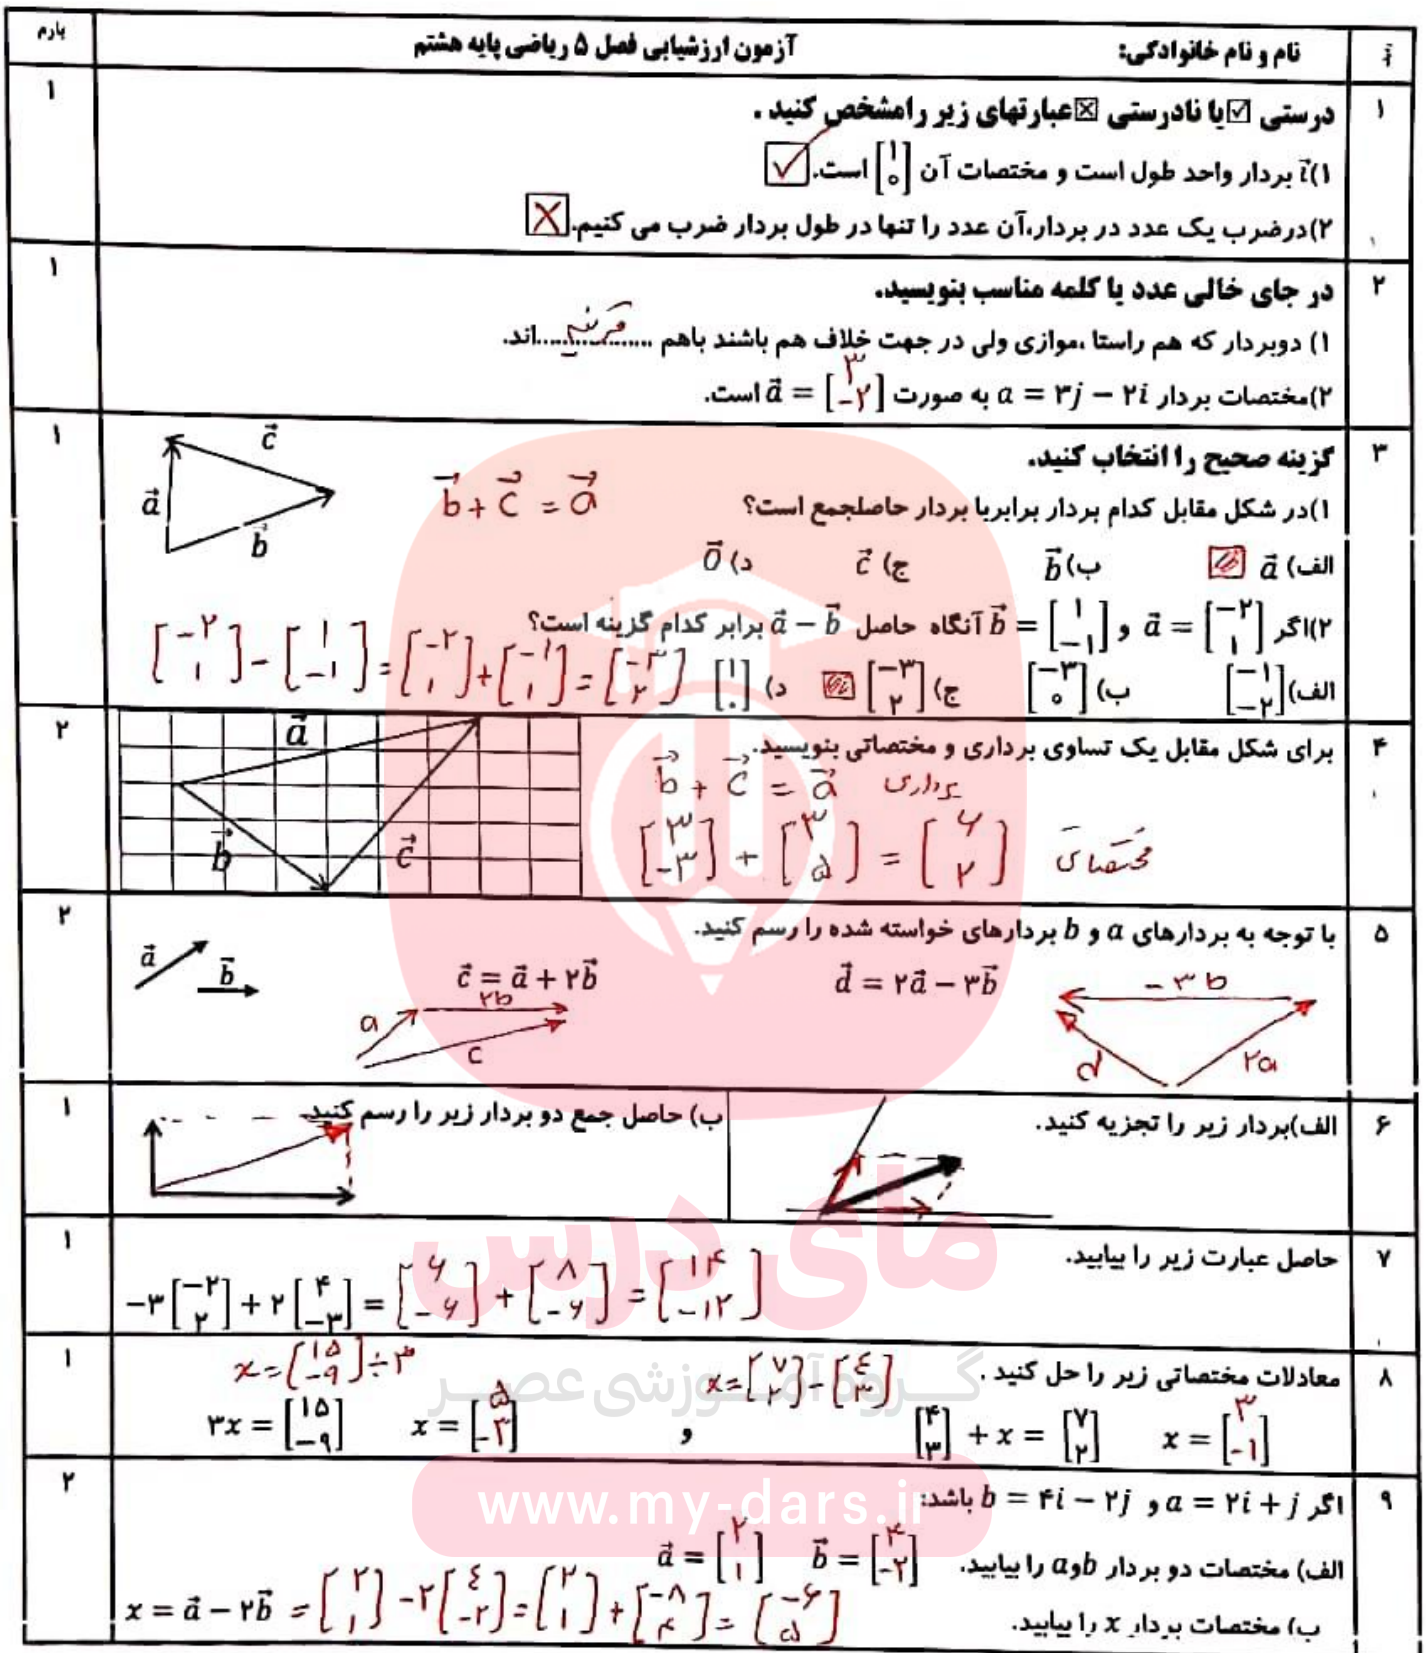 نام و نام خانوادگی: آزمون ارزشیابی فصل ۵ ریاضی پایه هشتم بارم
۱ درستی ☑ یا نادرستی ☒ عبارتهای زیر رامشخص کنید . ۱
۱) i⃗ بردار واحد طول است و مختصات آن [۱ ۰] است. ✓
۲)درضرب یک عدد در بردار،آن عدد را تنها در طول بردار ضرب می کنیم. X
۲ در جای خالی عدد یا کلمه مناسب بنویسید. ۱
۱) دوبردار که هم راستا ،موازی ولی در جهت خلاف هم باشند باهم ....قرینه....اند.
۲)مختصات بردار a = ۳j − ۲i به صورت a⃗ = [۳ −۲] است.
۳ گزینه صحیح را انتخاب کنید. ۱
a⃗ b⃗ c⃗
b⃗ + c⃗ = a⃗
۱)در شکل مقابل کدام بردار برابربا بردار حاصلجمع است؟
الف) a⃗ ب) b⃗ ج) c⃗ د) O⃗
۲)اگر a⃗ = [−۲ ۱] و b⃗ = [۱ −۱] آنگاه حاصل a⃗ − b⃗ برابر کدام گزینه است؟
[−۲ ۱] − [۱ −۱] = [−۲ ۱] + [−۱ ۱] = [−۳ ۲]
الف) [−۱ −۲] ب) [−۳ ۰] ج) [−۳ ۲] د) [۱ ۰]
۴ برای شکل مقابل یک تساوی برداری و مختصاتی بنویسید. ۲
a⃗ b⃗ c⃗
b⃗ + c⃗ = a⃗ برداری
[۳ −۳] + [۳ ۵] = [۶ ۲] مختصاتی
۵ با توجه به بردارهای a و b بردارهای خواسته شده را رسم کنید. ۲
a⃗ b⃗
c⃗ = a⃗ + ۲b⃗ d⃗ = ۲a⃗ − ۳b⃗
a ۲b c
−۳b d ۲a
۶ الف)بردار زیر را تجزیه کنید. ب) حاصل جمع دو بردار زیر را رسم کنید. ۱
۷ حاصل عبارت زیر را بیابید. ۱
−۳[−۲ ۲] + ۲[۴ −۳] = [۶ −۶] + [۸ −۶] = [۱۴ −۱۲]
۸ معادلات مختصاتی زیر را حل کنید . ۱
x = [۷ ۲] − [٤ ۳] x = [۱۵ −۹] ÷ ۳
[۴ ۳] + x = [۷ ۲] x = [۳ −۱] و ۳x = [۱۵ −۹] x = [۵ −۳]
۹ اگر a = ۲i + j و b = ۴i − ۲j باشد: ۲
الف) مختصات دو بردار a و b را بیابید. a⃗ = [۲ ۱] b⃗ = [۴ −۲]
ب) مختصات بردار x را بیابید. x = a⃗ − ۲b⃗ = [۲ ۱] − ۲[٤ −۲] = [۲ ۱] + [−۸ ۴] = [−۶ ۵]
مای درس
گروه آموزشی عصر
www.my-dars.ir